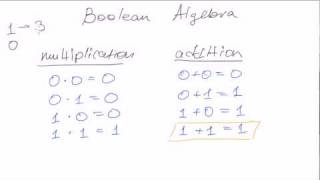 Boolean Algebra
1 → 3
0
multiplication addition
0 · 0 = 0 0 + 0 = 0
0 · 1 = 0 0 + 1 = 1
1 · 0 = 0 1 + 0 = 1
1 · 1 = 1 1 + 1 = 1